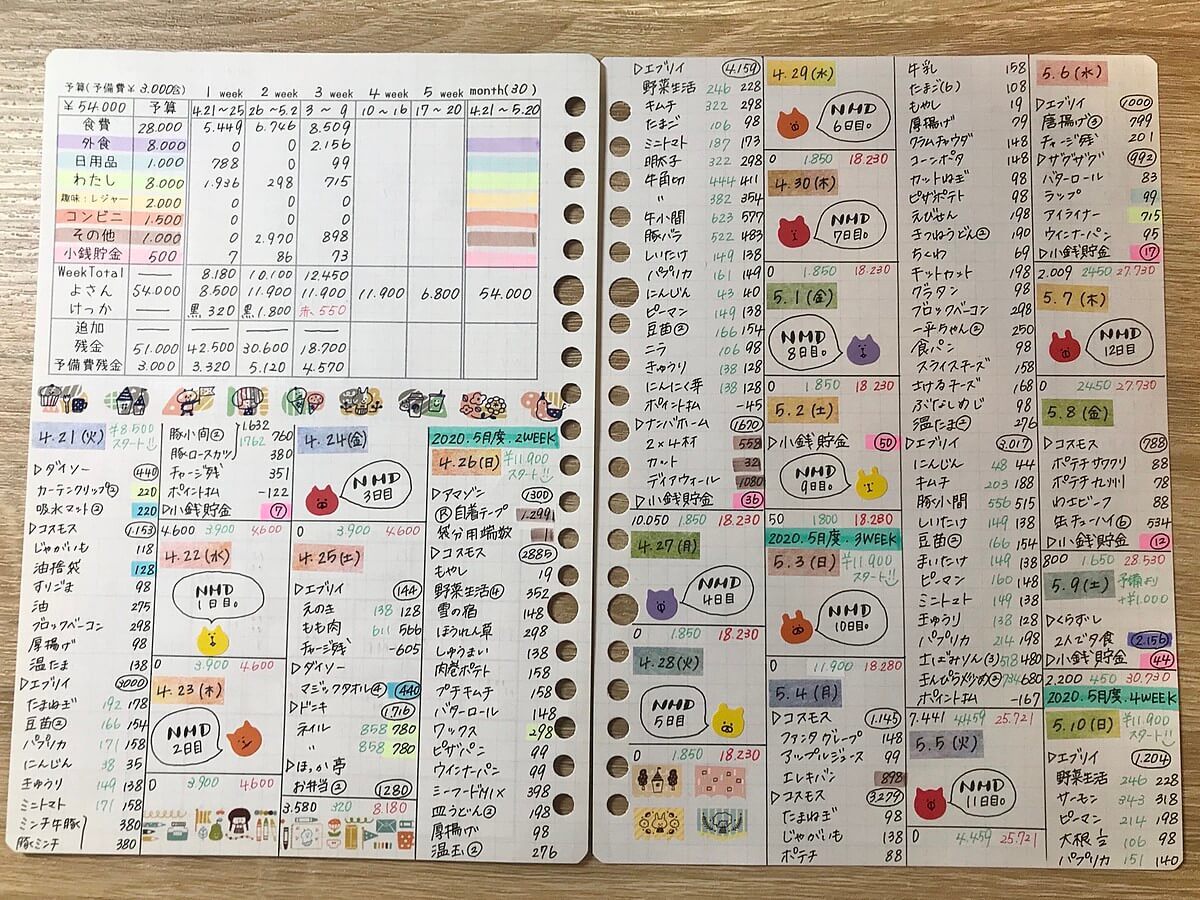 予算(予備費¥3.000含)
1 week 2 week 3 week 4 week 5 week month(30)
¥54.000 予算 4.21~25 26~5.2 3~9 10~16 17~20 4.21~5.20
食費 28.000 5.449 6.746 8.509
外食 8.000 0 0 2.156
日用品 1.000 788 0 99
わたし 8.000 1.936 298 715
趣味:レジャー 2.000 0 0 0
コンビニ 1.500 0 0 0
その他 1.000 0 2.970 898
小銭貯金 500 7 86 73
WeekTotal — 8.180 10.100 12.450
よさん 54.000 8.500 11.900 11.900 11.900 6.800 54.000
けっか — 黒 320 黒 1.800 赤 550
追加 — — — —
残金 51.000 42.500 30.600 18.700
予備費残金 3.000 3.320 5.120 4.570
4.21(火) ¥8.500 スタート
▷ダイソー 440
カーテンクリップ② 220
吸水マット② 220
▷コスモス 1.153
じゃがいも 118
油捨袋 128
すりごま 98
油 275
ブロックベーコン 298
厚揚げ 98
温たま 138
▷エブリイ 3000
たまねぎ 192 178
豆苗② 166 154
パプリカ 171 158
にんじん 38 35
きゅうり 149 138
ミニトマト 171 158
ミンチ牛豚 380
豚ミンチ 380
豚小間② 1.632 1762 760
豚ロースカツ 380
チャージ残 351
ポイント払 -122
▷小銭貯金 7
4.600 3.900 4.600
4.22(水)
NMD
1日目。
0 3.900 4.600
4.23(木)
NMD
2日目
0 3.900 4.600
4.24(金)
NMD
3日目
0 3.900 4.600
4.25(土)
▷エブリイ 144
えのき 138 128
もも肉 611 566
チャージ残 -605
▷ダイソー
マジックタオル④ 440
▷ドンキ 1.716
ネイル 858 780
〃 858 780
▷ほっか亭
お弁当② 1280
3.580 320 8.180
2020.5月度.2WEEK
4.26(日) ¥11.900 スタート
▷アマゾン 1300
Ⓡ自着テープ 1.299
袋分用端数 1
▷コスモス 2885
もやし 19
野菜生活④ 352
雪の宿 148
ほうれん草 298
しゅうまい 138
肉巻ポテト 158
プチキムチ 158
バターロール 148
ワックス 298
ピザパン 99
ウインナーパン 99
シーフードMIX 398
皿うどん② 198
厚揚げ 98
温玉② 276
▷エブリイ 4.159
野菜生活 246 228
キムチ 322 298
たまご 106 98
ミニトマト 187 173
明太子 322 298
牛角切 444 411
〃 382 354
牛小間 623 577
豚バラ 522 483
しいたけ 149 138
パプリカ 161 149
にんじん 43 40
ピーマン 149 138
豆苗② 166 154
ニラ 106 98
きゅうり 138 128
にんにく芽 138 128
ポイント払 -45
▷ナンバホーム 1670
2×4材 558
カット 32
ディアウォール 1080
▷小銭貯金 36
10.050 1.850 18.230
4.27(月)
NMD
4日目
0 1.850 18.230
4.28(火)
NMD
5日目
0 1.850 18.230
4.29(水)
NMD
6日目。
0 1.850 18.230
4.30(木)
NMD
7日目。
0 1.850 18.230
5.1(金)
NMD
8日目。
0 1.850 18.230
5.2(土)
▷小銭貯金 50
NMD
9日目。
50 1800 18.280
2020.5月度.3WEEK
5.3(日) ¥11.900 スタート
NMD
10日目。
0 11.900 18.280
5.4(月)
▷コスモス 1.145
ファンタグレープ 148
アップルジュース 99
エレキバン 898
▷コスモス 3.274
たまねぎ 98
じゃがいも 138
ポテチ 88
牛乳 158
たまご(6) 108
もやし 19
厚揚げ 79
クラムチャウダ 148
コーンポタ 148
カットねぎ 98
ピザポテト 98
えびせん 198
きつねうどん② 190
ちくわ 69
キットカット 198
グラタン 98
ブロックベーコン 298
一平ちゃん② 250
食パン 98
スライスチーズ 158
さけるチーズ 168
ぶなしめじ 98
温たま② 276
▷エブリイ 3.017
にんじん 48 44
キムチ 203 188
豚小間 556 515
しいたけ 149 138
豆苗② 166 154
まいたけ 149 138
ピーマン 160 148
ミニトマト 149 138
きゅうり 138 128
パプリカ 214 198
518 480
734 680
ポイント払 -167
7.441 4459 25.721
5.5(火)
NMD
11日目。
0 4.459 25.721
5.6(水)
▷エブリイ 1000
唐揚げ③ 799
チャージ残 201
▷ザグザグ 992
バターロール 83
ラップ 99
アイライナー 715
ウィンナーパン 95
▷小銭貯金 17
2.009 2450 27.730
5.7(木)
NMD
12日目
0 2450 27.730
5.8(金)
▷コスモス 788
ポテチサワクリ 88
ポテチ九州 78
わエビーフ 88
缶チューハイ⑥ 534
▷小銭貯金 12
800 1.650 28.530
5.9(土) 予備より +¥1.000
▷くらずし
2人で夕食 2.156
▷小銭貯金 44
2.200 450 30.730
2020.5月度.4WEEK
5.10(日) ¥11.900 スタート
▷エブリイ 1.204
野菜生活 246 228
サーモン 343 318
ピーマン 214 198
大根½ 106 98
パプリカ 151 140